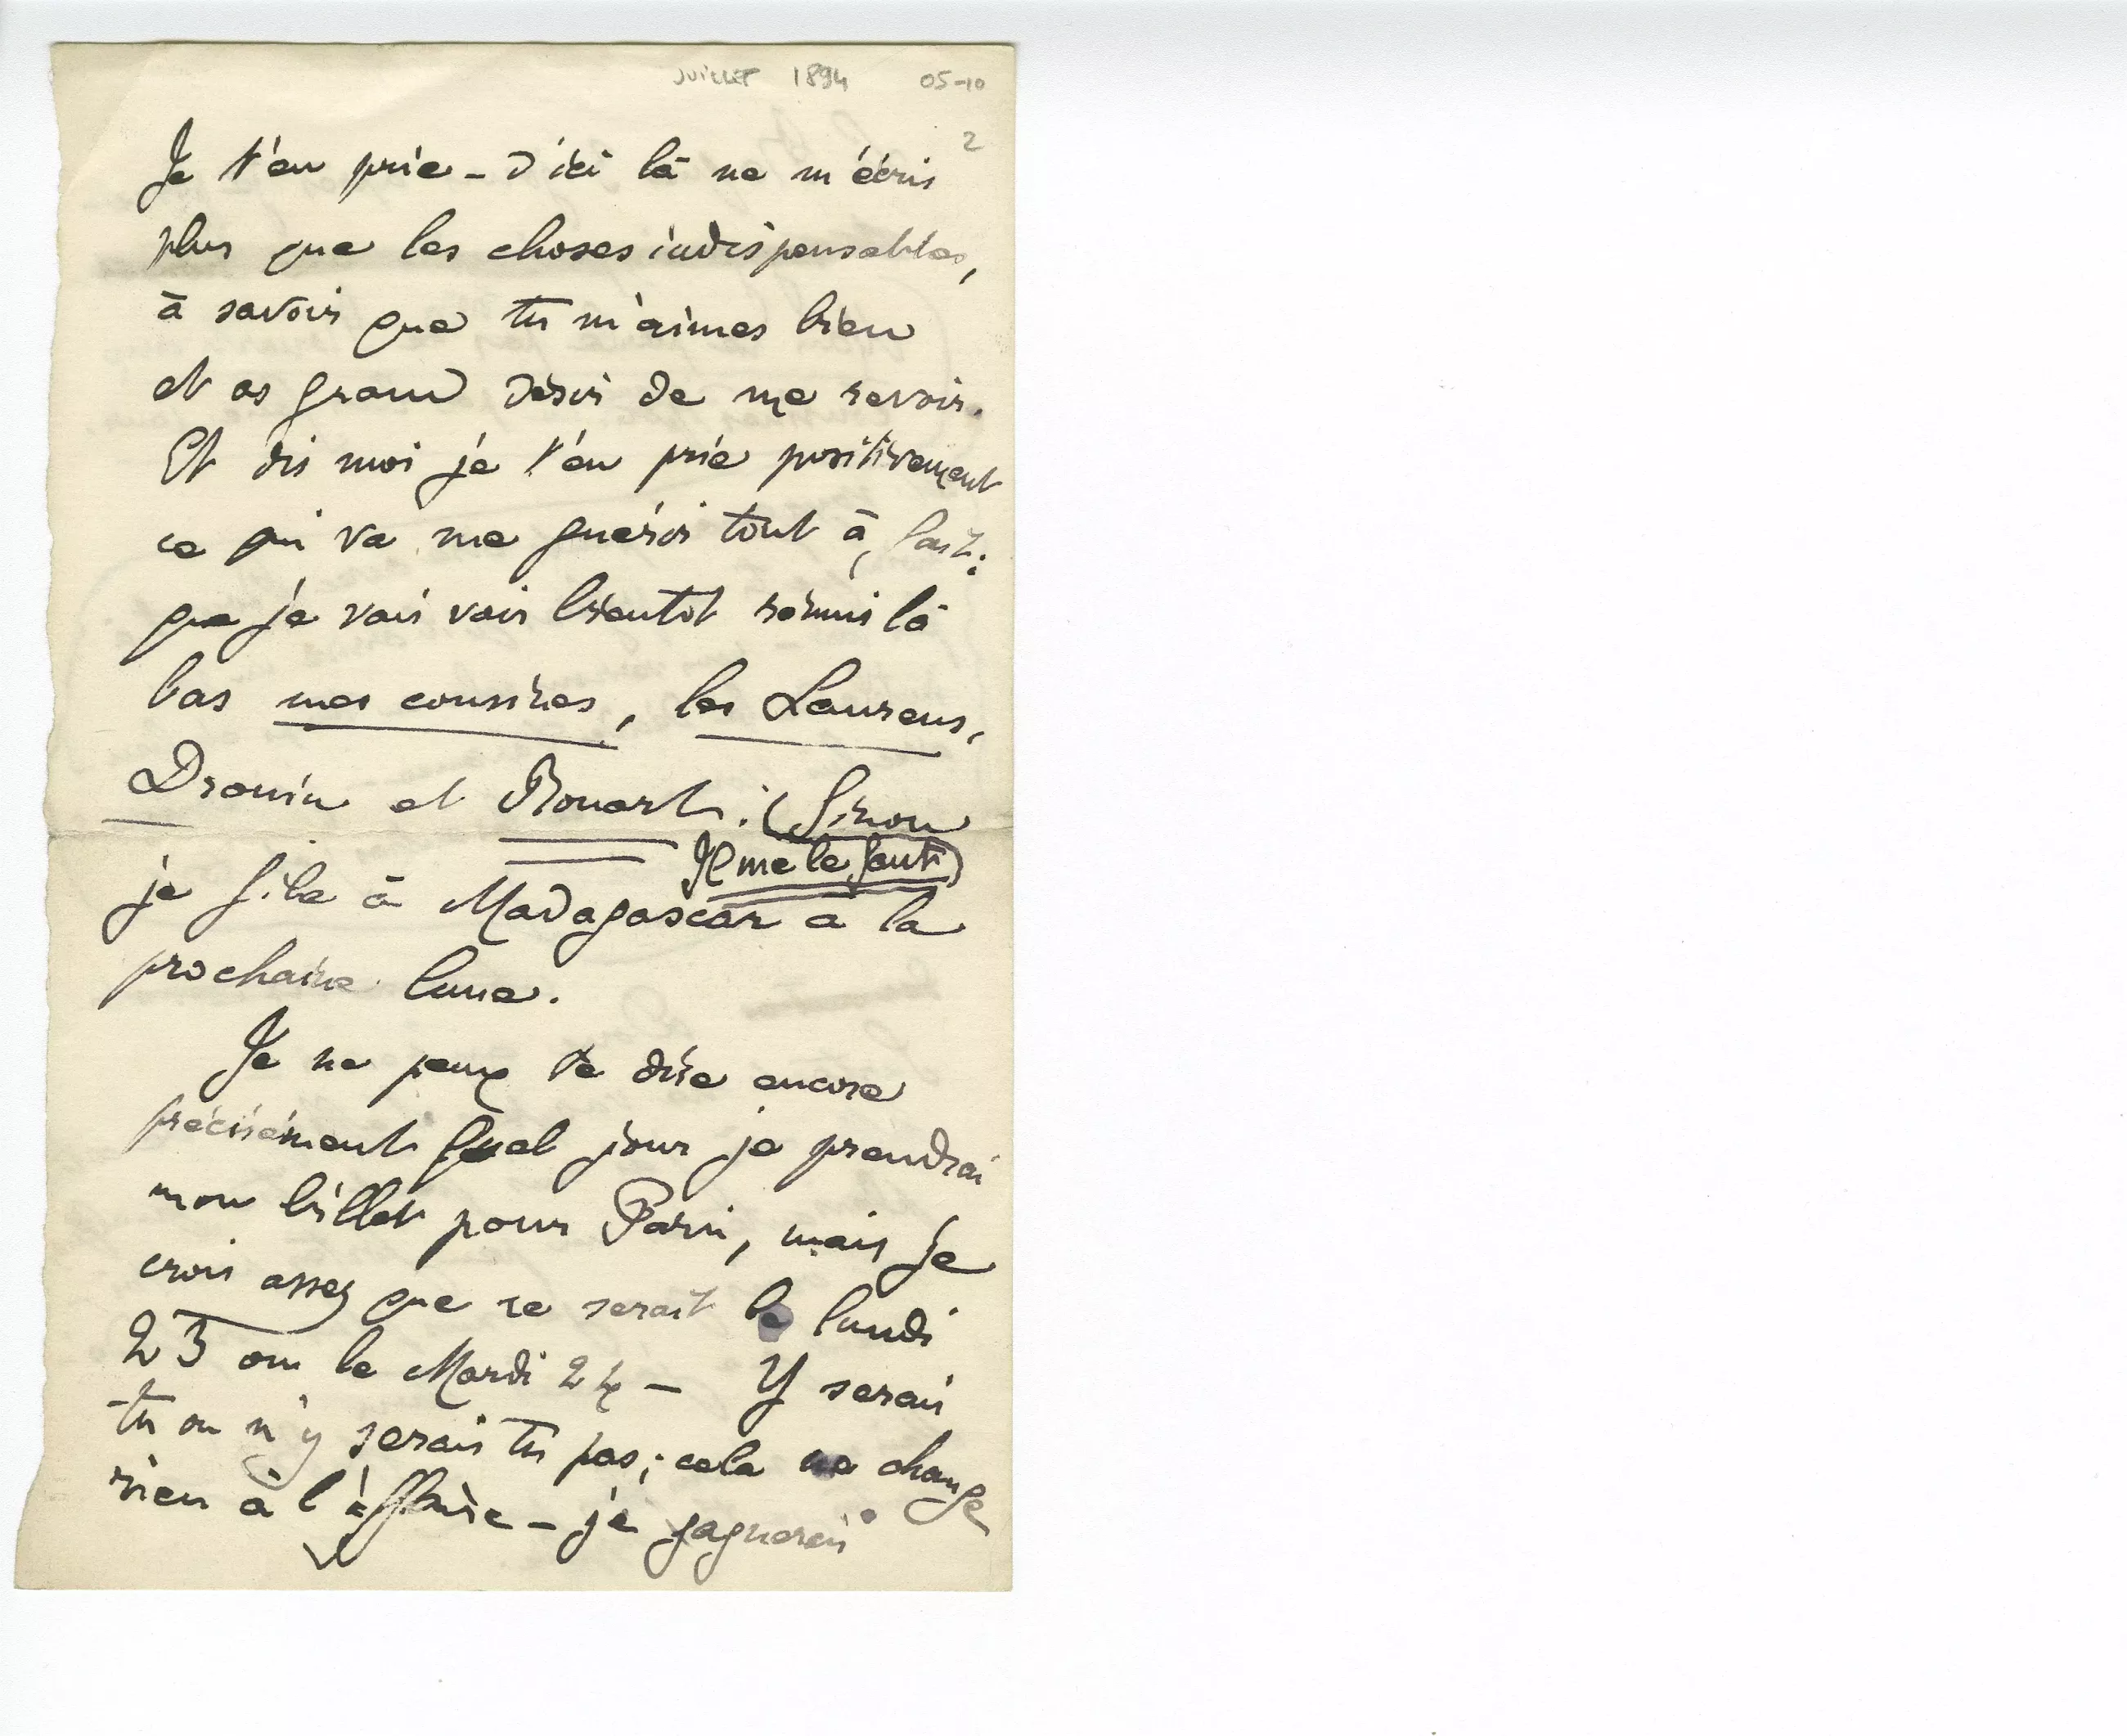 JUILLET 1894 05-10
2
Je t'en prie – d'ici là ne m'écris
plus que les choses indispensables,
à savoir que tu m'aimes bien
et as grand désir de me revoir.
Et dis moi je t'en prie positivement
ce qui va me guérir tout à fait :
que je vais voir bientot réunis là
bas mes cousines, les Laurens,
Drouin et Rouart. (Sinon
Il me le faut)
je file à Madagascar à la
prochaine lune.
Je ne peux te dire encore
précisément quel jour je prendrai
mon billet pour Paris, mais je
crois assez que ce serait le lundi
23 ou le Mardi 24 – Y serais
tu ou n'y serais tu pas ; cela ne change
rien à l'affaire – je gagnerai